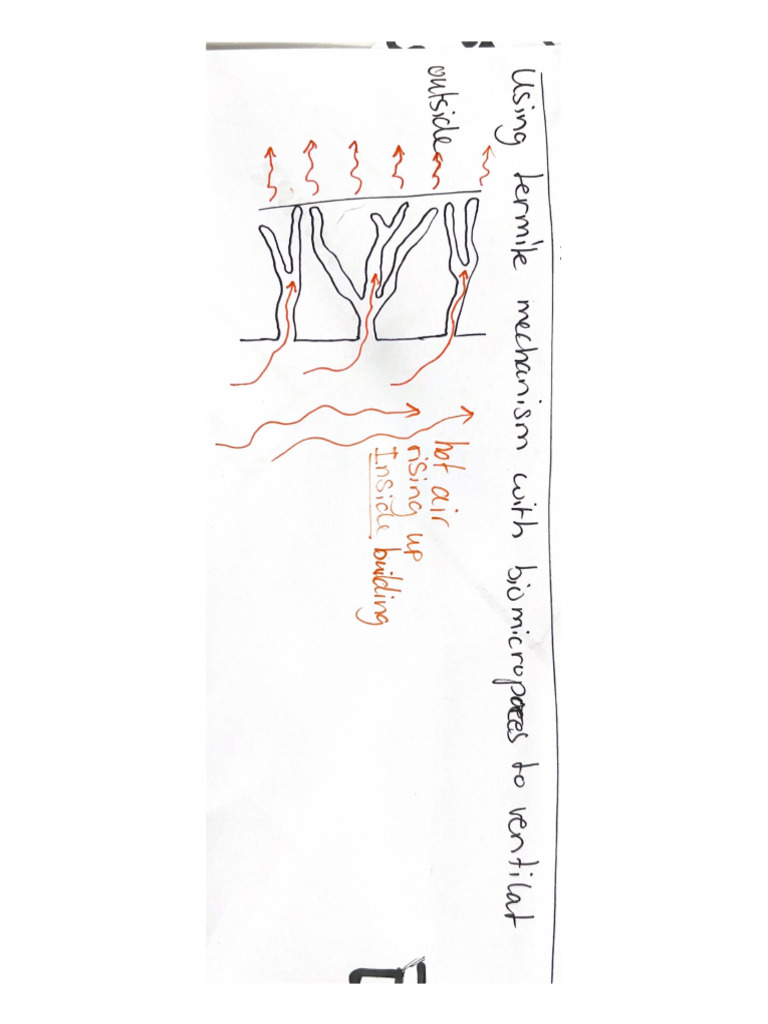 Using termite mechanism with biomicropores to ventilat
outside
hot air
rising up
Inside building